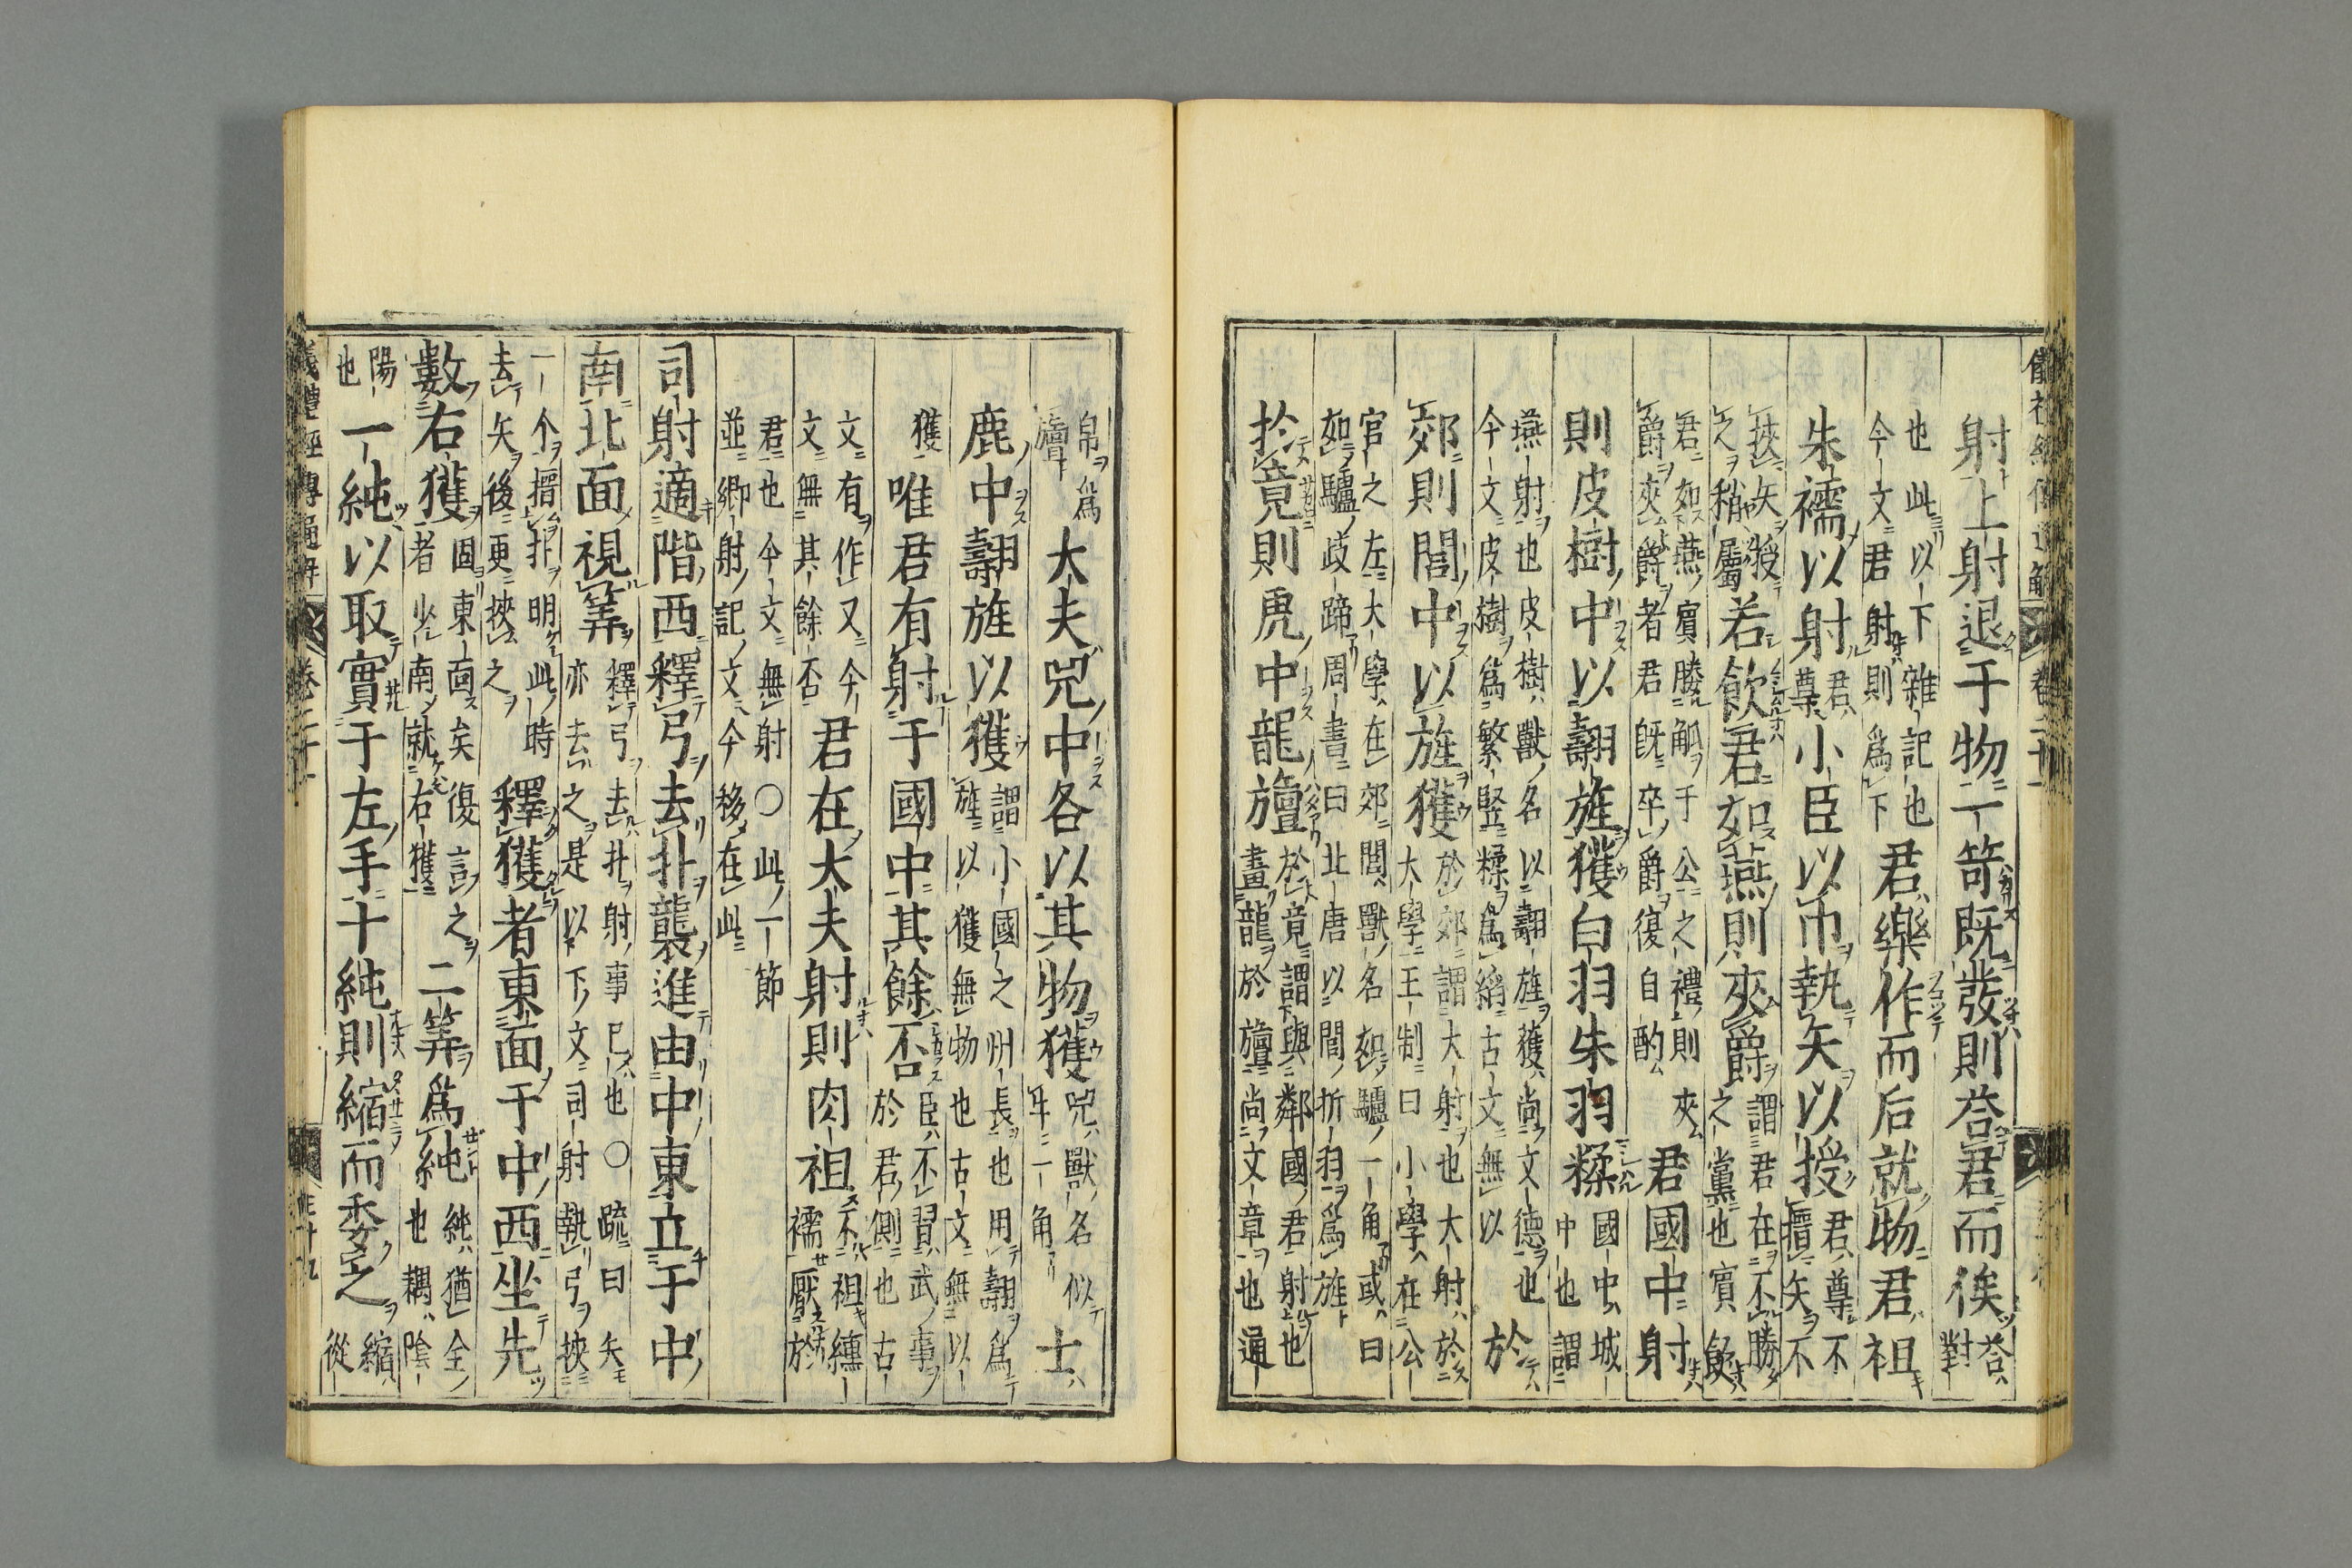 射上射退于物一笴既發則荅君而俟荅對
也此以下雜記也
今文君射則爲下君樂作而后就物君袒
朱襦以射君尊小臣以巾執矢以授君尊不
搢矢不
挾矢授
之稍屬若飲君如燕則夾爵謂君在不勝
之黨也賓飲
君如燕賓媵觚于公之禮則夾
爵夾爵者君旣卒爵復自酌君國中射
則皮樹中以翿旌獲白羽朱羽糅國中城
中也謂
燕射也皮樹獸名以翿旌獲尚文德也
今文皮樹爲繁竪糅爲綃古文無以於
郊則閭中以旌獲於郊謂大射也大射於
大學王制曰小學在公
官之左大學在郊閭獸名如驢一角或曰
如驢歧蹄周書曰北唐以閭折羽爲旌
於竟則虎中龍旜於竟謂與鄰國君射也
畫龍於旜尚文章也通
帛爲
旜大夫兕中各以其物獲兕獸名似
牛一角士
鹿中翿旌以獲謂小國之州長也用翿爲
旌以獲無物也古文無以
獲唯君有射于國中其餘否臣不習武事
於君側也古
文有作又今
文無其餘否君在大夫射則肉袒不袒纁
襦厭於
君也今文無射○此一節
並鄉射記文今移在此
司射適階西釋弓去扑襲進由中東立于中
南北面視筭釋弓去扑射事巳也○疏曰矢
亦去之是以下文司射執弓挾
一个搢扑明此時
去矢後更挾之釋獲者東面于中西坐先
數右獲固東面矣復言之
者少南就右獲二筭爲純純猶全
也耦陰
陽
也一純以取實于左手十純則縮而委之縮
從
儀禮經傳通解
卷二十